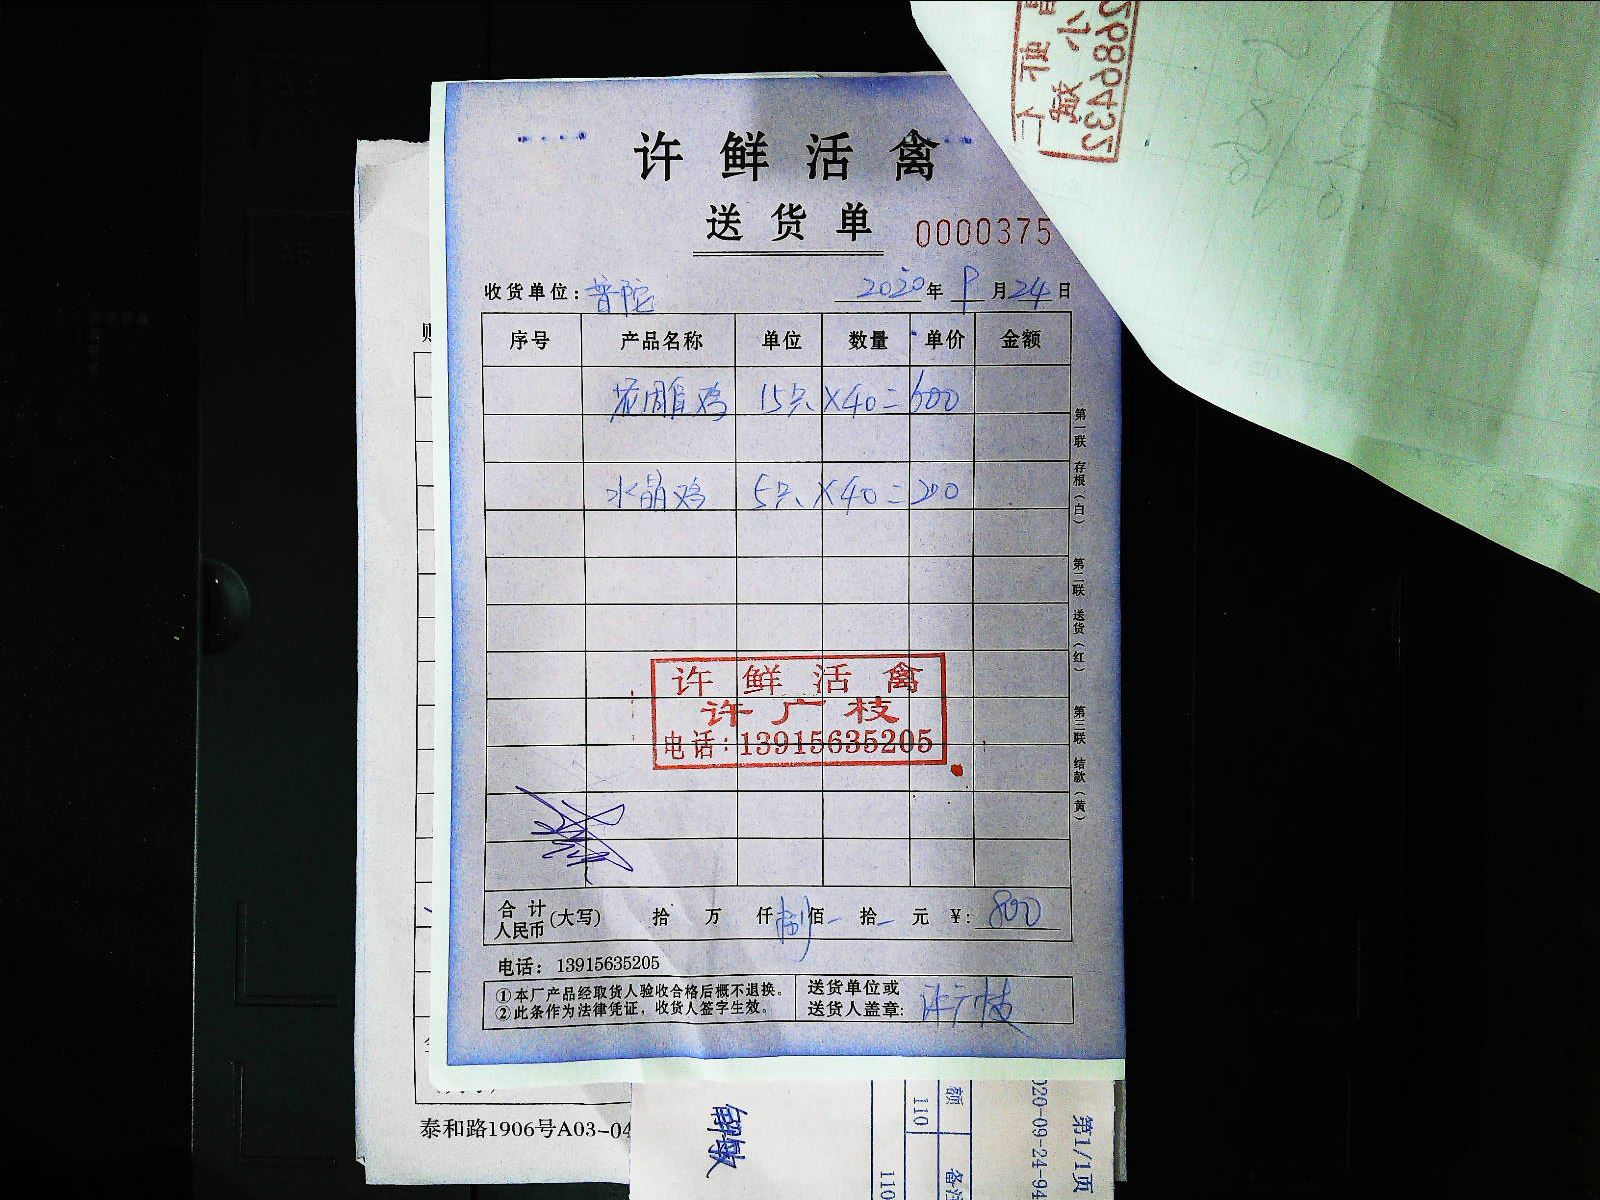 许鲜活禽
送货单 0000375
收货单位：普陀 2020年 9月24日
序号 产品名称 单位 数量 单价 金额
花雕鸡 15只 ×40=600
水晶鸡 5只 ×40=200
许鲜活禽
许广枝
电话：13915635205
合计人民币(大写) 拾 万 仟 捌佰 拾 元 ¥：800
电话：13915635205
①本厂产品经取货人验收合格后概不退换。
②此条作为法律凭证，收货人签字生效。
送货单位或
送货人盖章：许广枝
第一联 存根（白） 第二联 送货（红） 第三联 结款（黄）
泰和路1906号A03-04
额
110
备注
110
020-09-24-94
第1/1页
2686432